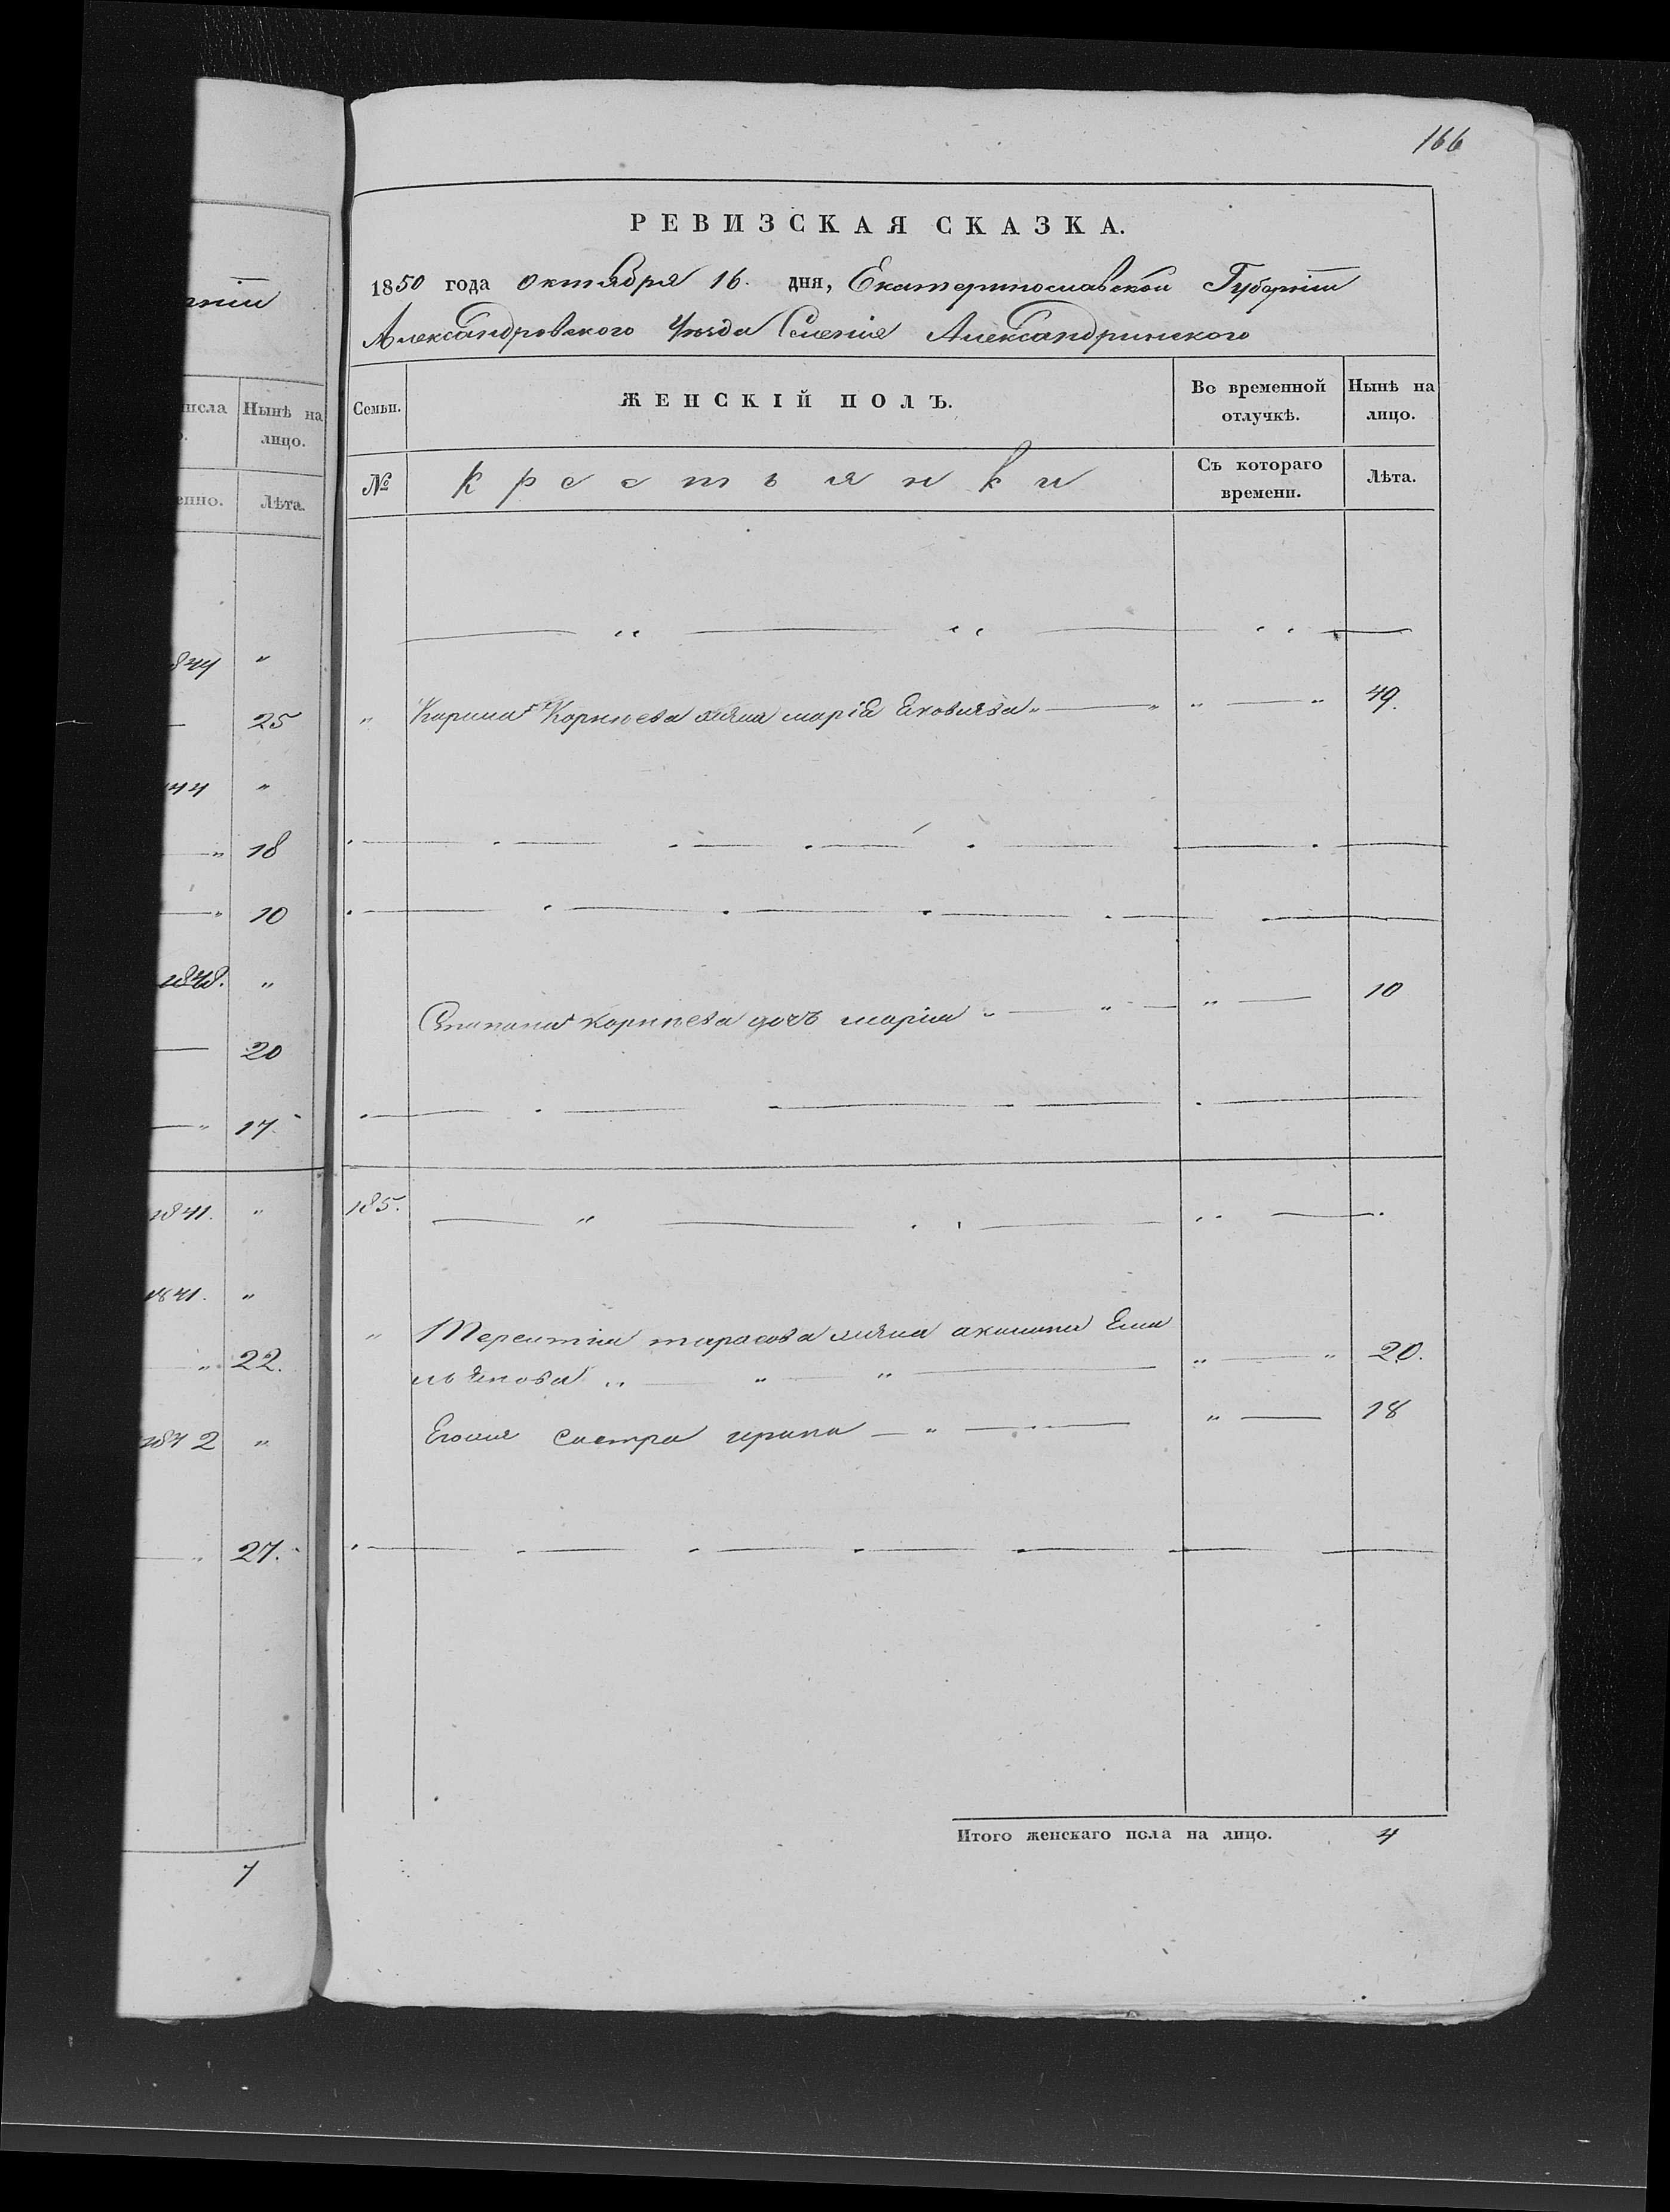 166
РЕВИЗСКАЯ СКАЗКА.
1850 года октября 16. дня, Екатеринославской Губерніи
Александровского Уѣзда Селенія Александринского
Семьи. ЖЕНСКІЙ ПОЛЪ. Во временной отлучкѣ. Нынѣ на лицо.
№ Крестьянки Съ котораго времени. Лѣта.
" Карпа Корнѣева жена марія Яковлева " " " " 49.
Степана Корнѣева дочь марія " " " 10
185.
" Терентія тарасова жена акилина Еми
льянова " " " " " 20.
Егоже Сестра ирина " " 18
Итого женскаго пола на лицо. 4
ніи
исла Нынѣ на
о. лицо.
енно. Лѣта.
844 "
25
44 "
" 18
" 10
1848. "
20
" 17.
1841. "
1841. "
" 22.
1842 "
" 27.
7